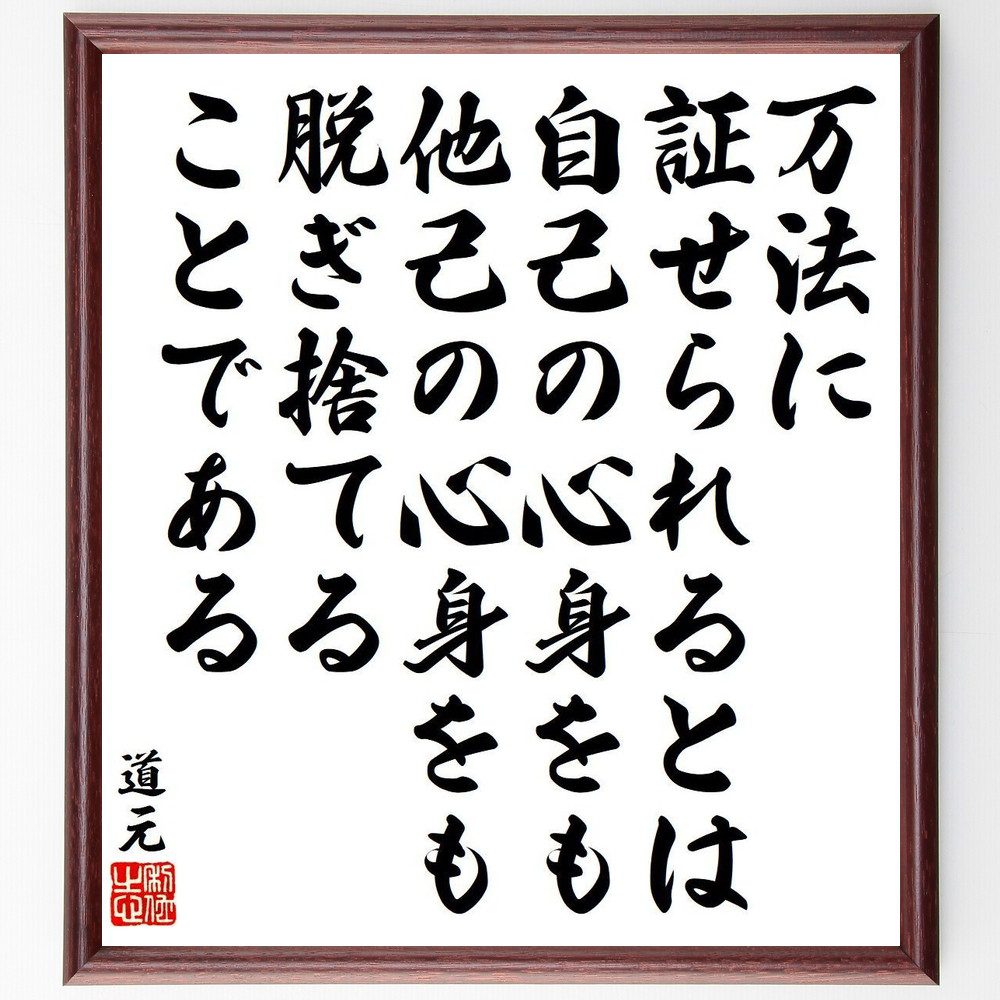 万法に
証せられるとは
自己の心身をも
他己の心身をも
脱ぎ捨てる
ことである
道元